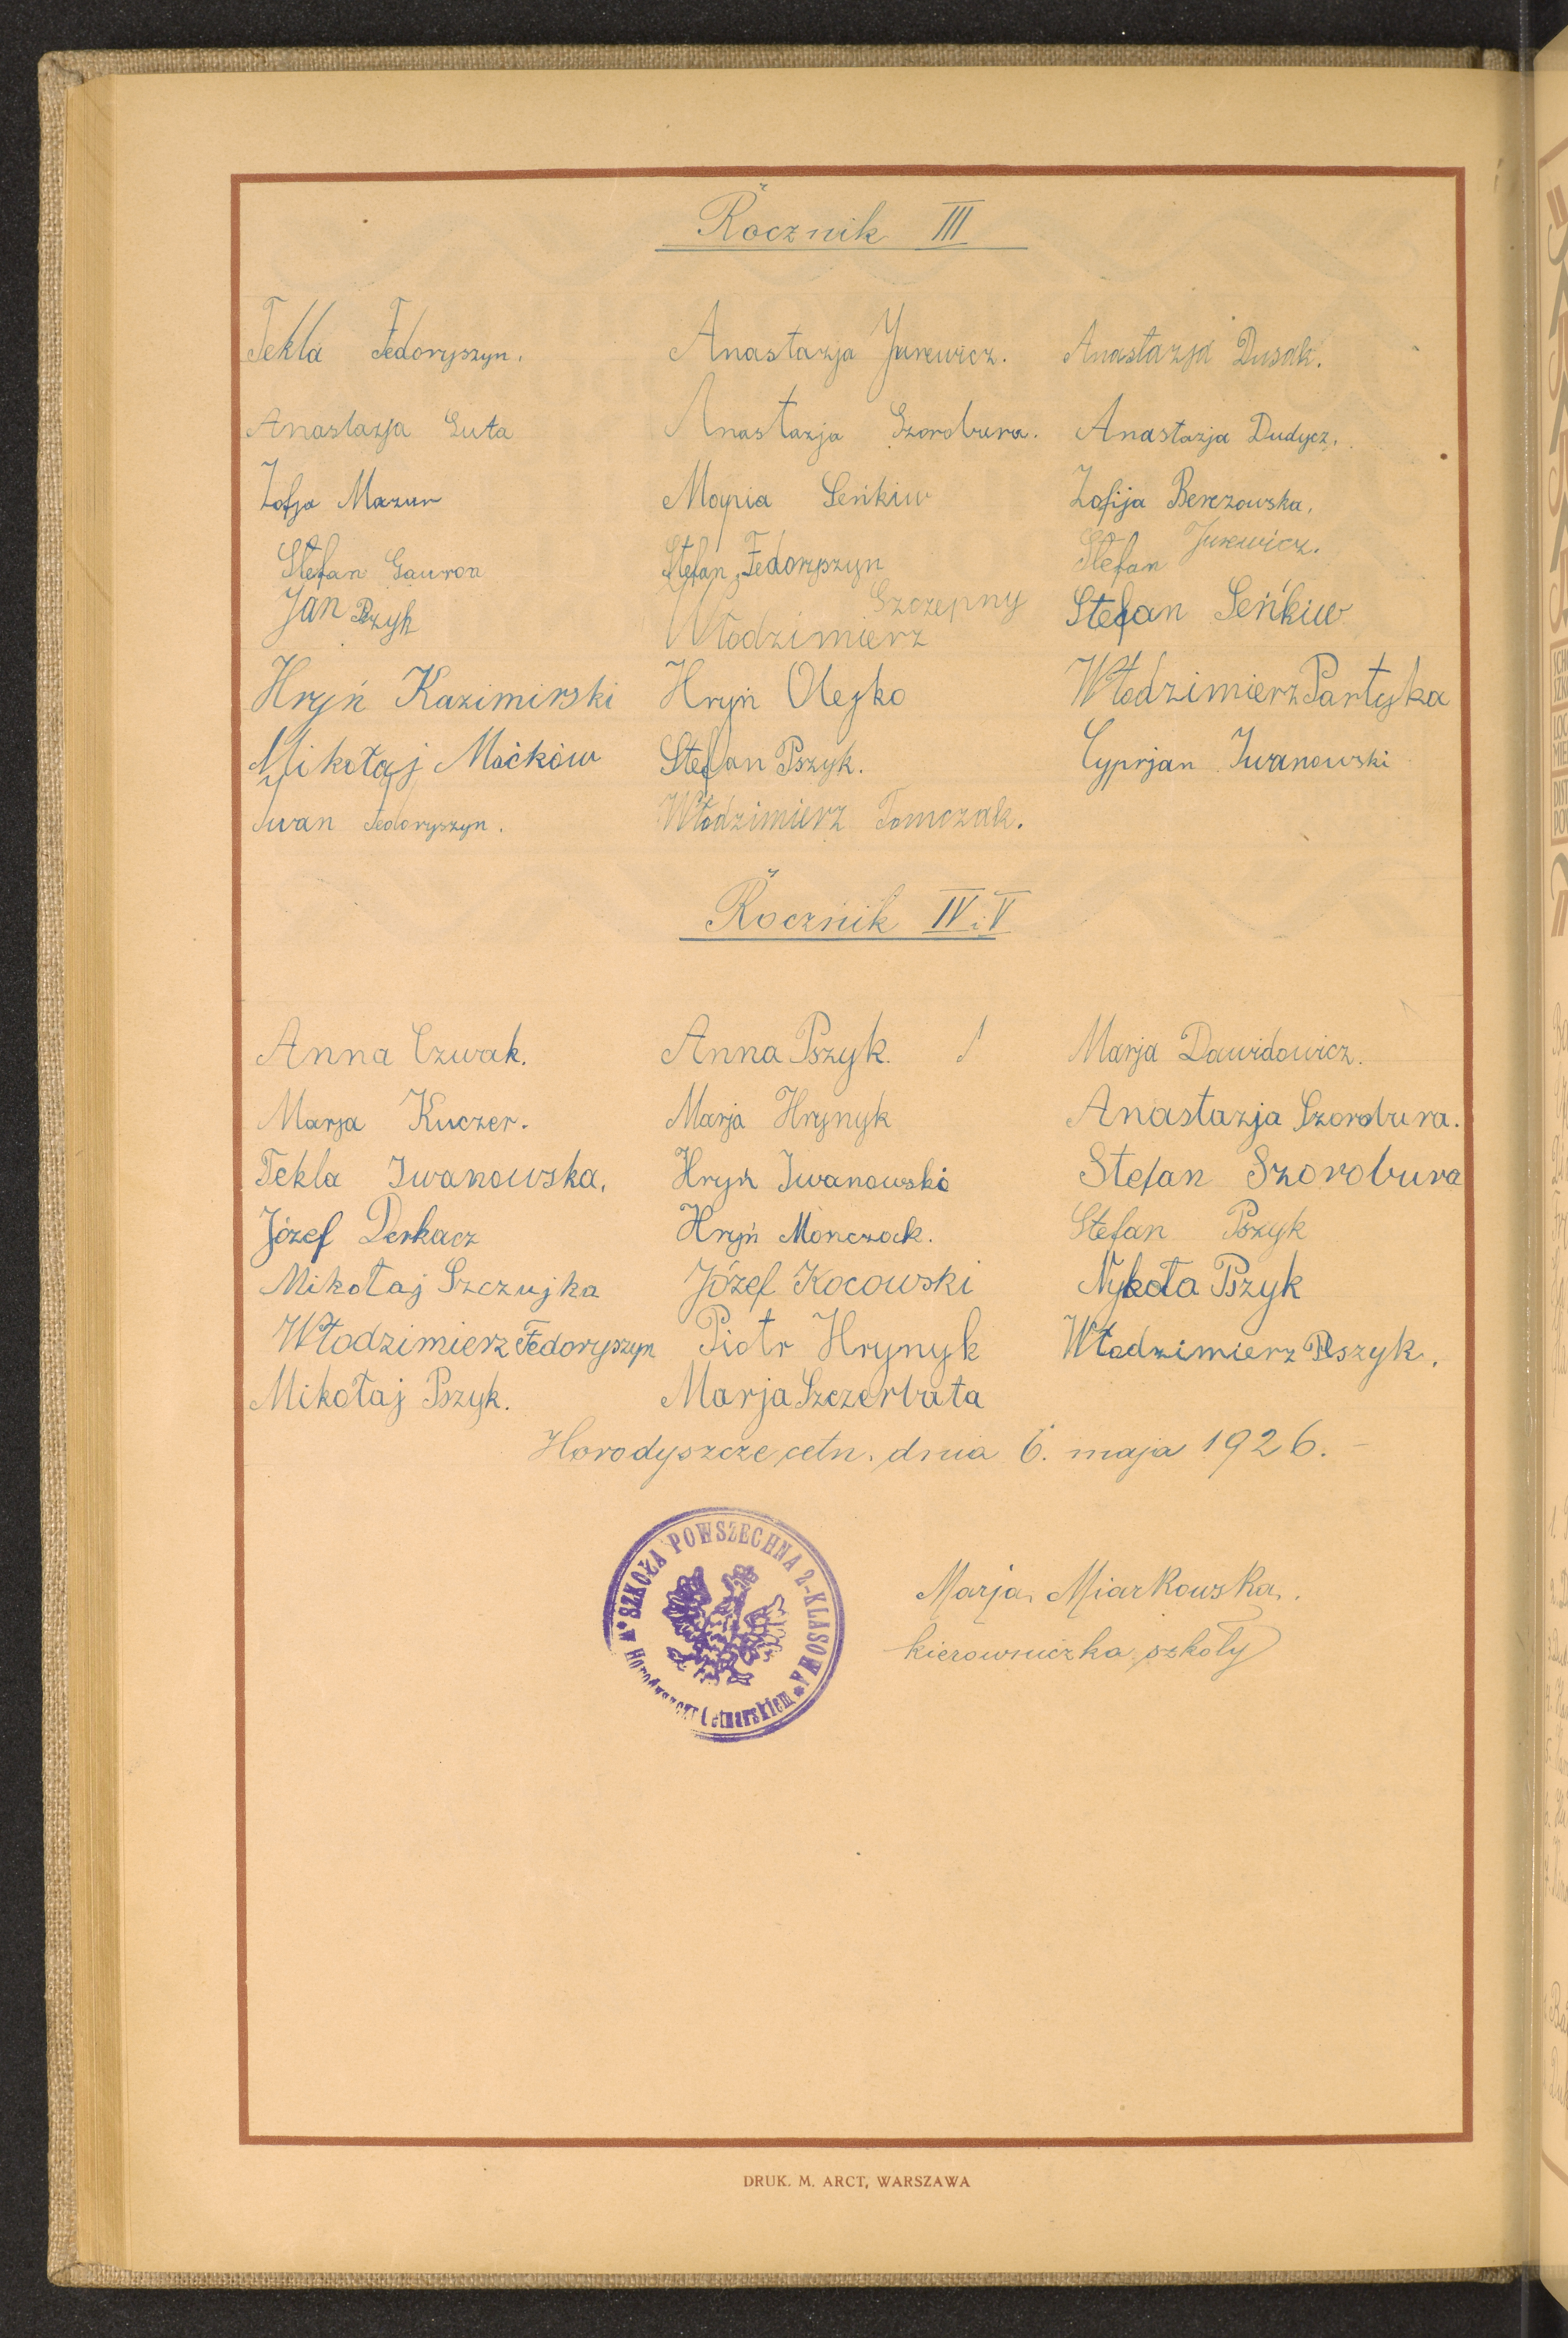 Rocznik III
Tekla Fedoryszyn. Anastazja Jurewicz. Anastazja Dusak.
Anastazja Guta Anastazja Szorobura. Anastazja Dudycz.
Zofja Mazur Maryia Seńkiw Zofija Berezowska.
Stefan Gawron Stefan Fedoryszyn Stefan Jurewicz.
Jan Pszyk Włodzimierz Szczepny Stefan Seńkiw
Hryń Kazimirski Hryń Olejko Włodzimierz Partyka
Mikołaj Maćków Stefan Pszyk. Cyprjan Iwanowski
Iwan Fedoryszyn. Włodzimierz Tomczak.
Rocznik IV i V
Anna Czwak. Anna Pszyk. Marja Dawidowicz.
Marja Kuczer. Marja Hrynyk Anastazja Szorobura.
Tekla Iwanowska. Hryń Iwanowski Stefan Szorobura
Józef Derkacz Hryń Monczak. Stefan Pszyk
Mikołaj Szczujka Józef Kocowski Nykoła Pszyk
Włodzimierz Fedoryszyn Piotr Hrynyk Włodzimierz Pszyk.
Mikołaj Pszyk. Marja Szczerbata
Horodyszcze cetn. dnia 6. maja 1926.
SZKOŁA POWSZECHNA 2-KLASOWA
w Cetnarskiem
Marja Miarkowska.
kierowniczka szkoły
DRUK. M. ARCT, WARSZAWA